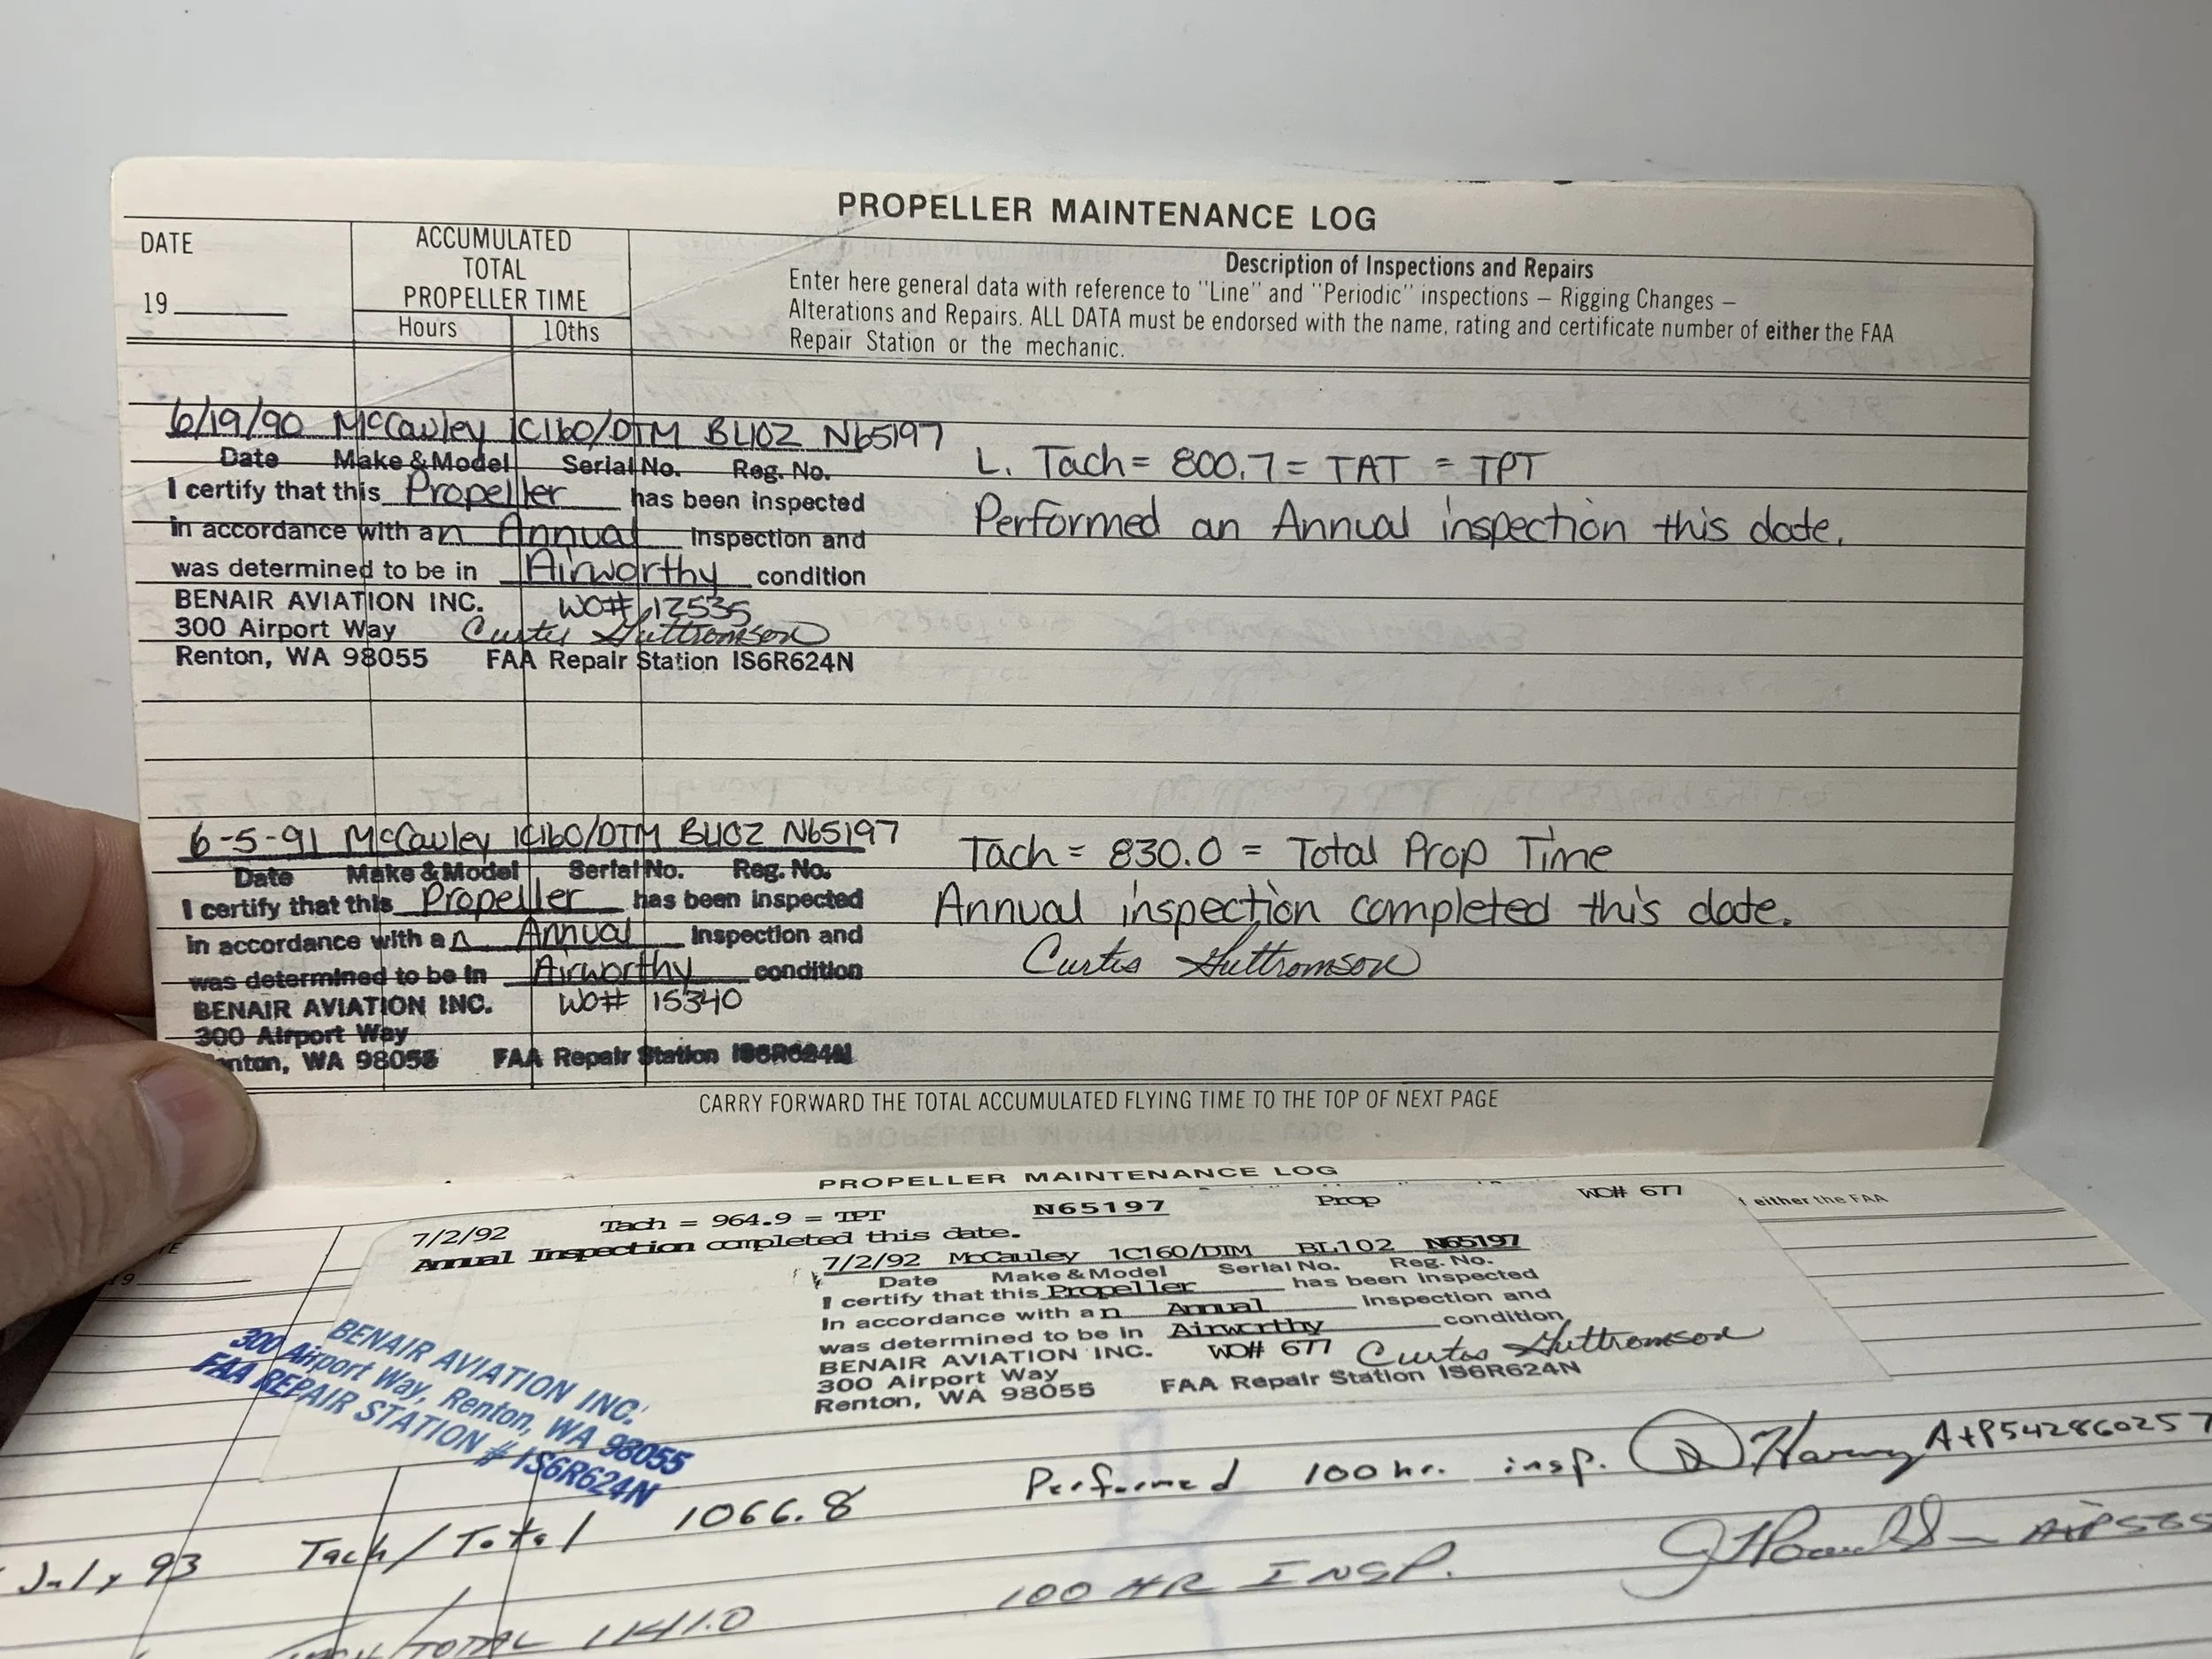 PROPELLER MAINTENANCE LOG
DATE
19
ACCUMULATED
TOTAL
PROPELLER TIME
Hours 10ths
Description of Inspections and Repairs
Enter here general data with reference to "Line" and "Periodic" inspections – Rigging Changes –
Alterations and Repairs. ALL DATA must be endorsed with the name, rating and certificate number of either the FAA
Repair Station or the mechanic.
6/19/90 McCauley 1C160/DTM BL102 N65197
Date Make & Model Serial No. Reg. No.
I certify that this Propeller has been inspected
in accordance with an Annual Inspection and
was determined to be in Airworthy condition
BENAIR AVIATION INC. WO# 12535
300 Airport Way Curtis Guttromson
Renton, WA 98055 FAA Repair Station IS6R624N
L. Tach = 800.7 = TAT = TPT
Performed an Annual inspection this date.
6-5-91 McCauley 1C160/DTM BL102 N65197
Date Make & Model Serial No. Reg. No.
I certify that this Propeller has been inspected
in accordance with an Annual Inspection and
was determined to be in Airworthy condition
BENAIR AVIATION INC. WO# 15340
300 Airport Way
enton, WA 98055 FAA Repair Station IS6R624N
Tach = 830.0 = Total Prop Time
Annual inspection completed this date.
Curtis Guttromson
CARRY FORWARD THE TOTAL ACCUMULATED FLYING TIME TO THE TOP OF NEXT PAGE
PROPELLER MAINTENANCE LOG
either the FAA
7/2/92 Tach = 964.9 = TPT N65197 Prop WO# 677
Annual Inspection completed this date.
7/2/92 McCauley 1C160/DTM BL102 N65197
Date Make & Model Serial No. Reg. No.
I certify that this Propeller has been inspected
in accordance with an Annual Inspection and
was determined to be in Airworthy condition
BENAIR AVIATION INC. WO# 677 Curtis Guttromson
300 Airport Way
Renton, WA 98055 FAA Repair Station IS6R624N
BENAIR AVIATION INC.
300 Airport Way, Renton, WA 98055
FAA REPAIR STATION # IS6R624N
July 93 Tach/Total 1066.8 Performed 100 hr. insp. A+P542860257
TOTAL 1141.0 100 HR INSP.